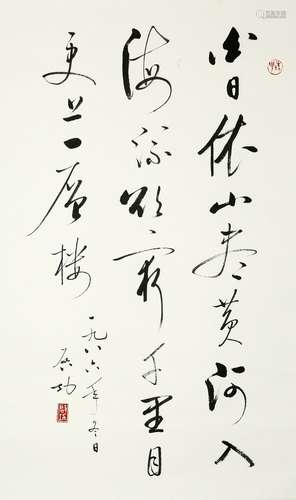 白日依山盡黄河入
海流欲窮千里目
更上一层楼
一九八六年冬日
启功